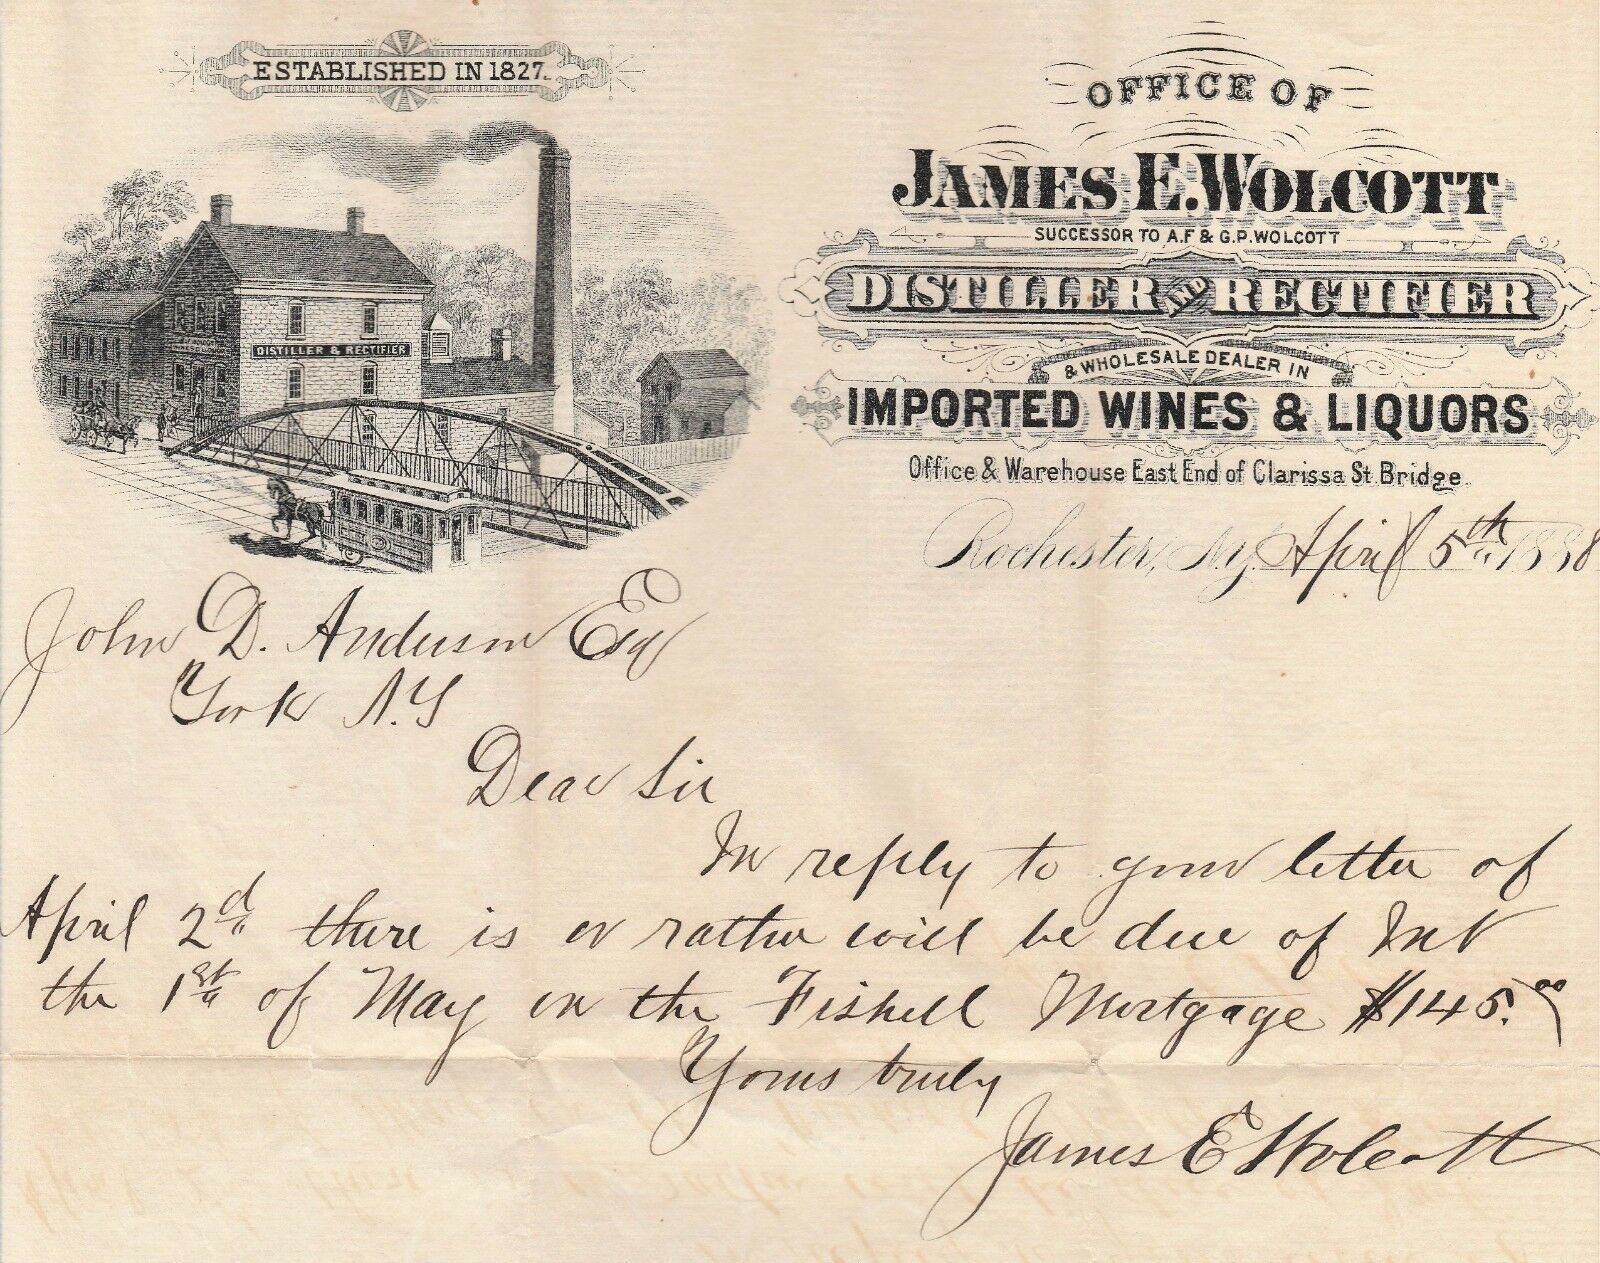 ESTABLISHED IN 1827.
DISTILLER & RECTIFIER
OFFICE OF
JAMES E. WOLCOTT
SUCCESSOR TO A.F & G.P. WOLCOTT
DISTILLER AND RECTIFIER
& WHOLESALE DEALER IN
IMPORTED WINES & LIQUORS
Office & Warehouse East End of Clarissa St. Bridge.
Rochester, N.Y. April 5th 1888
John D. Anderson Esq
York N.Y
Dear Sir
In reply to your letter of
April 2d there is or rather will be due of Int
the 1st of May on the Fishell Mortgage $145.00
Yours truly
James E Wolcott